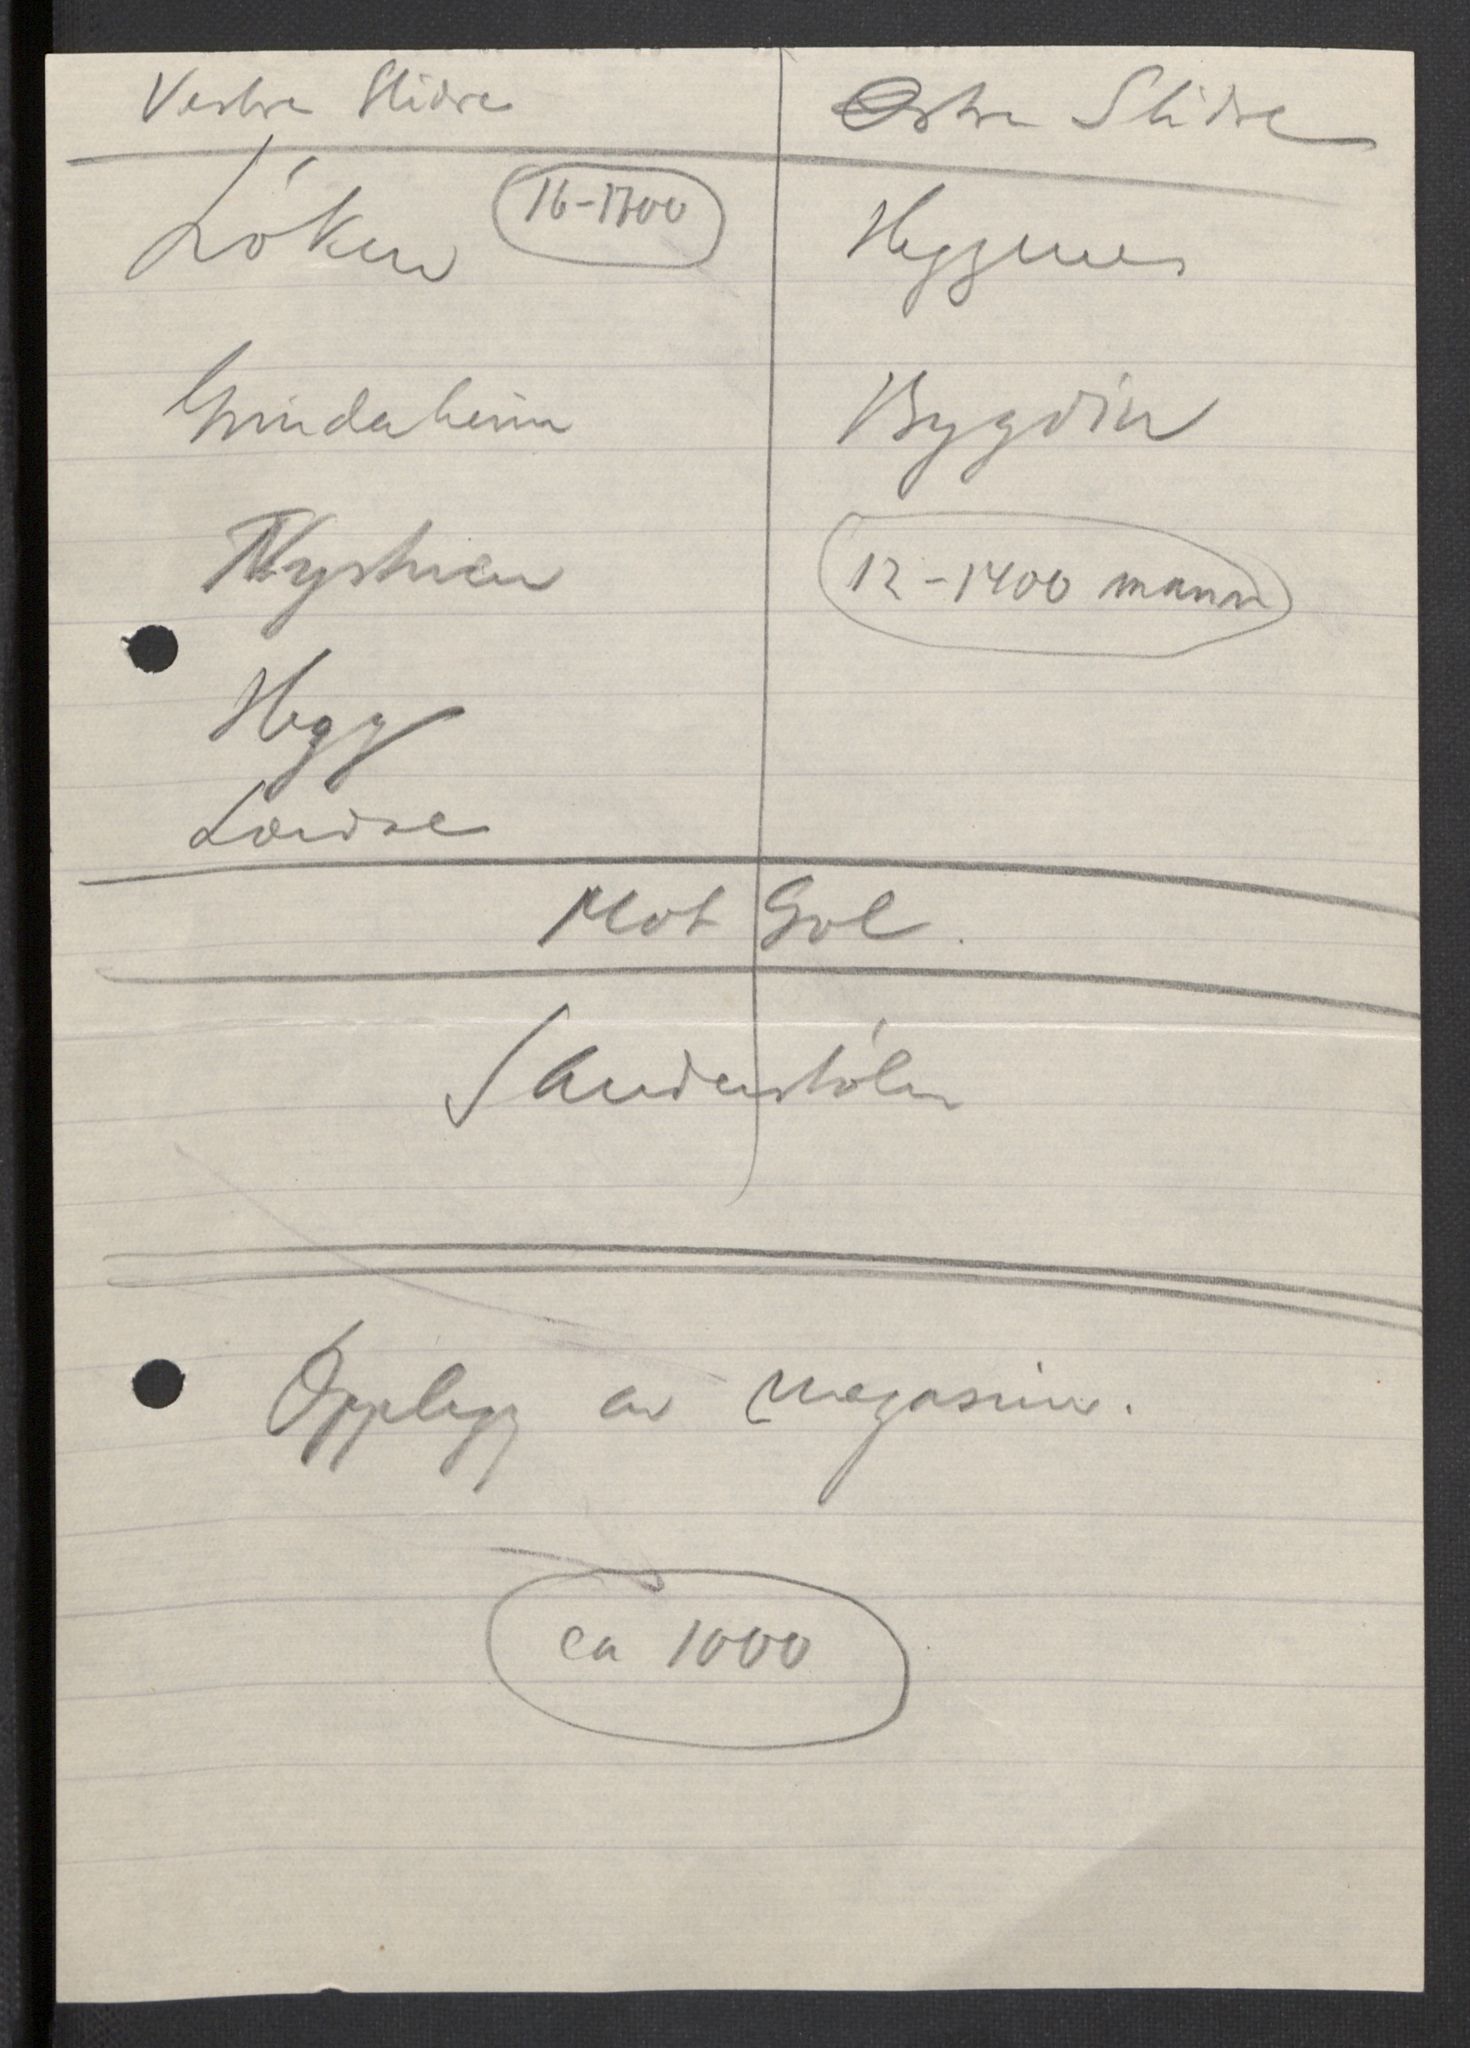 Vestre Slidre
Østre Slidre
Lóken 16-1700
Heggenes
Grindaheim
Bygdin
Nystuen
12-1400 mann
Hegg
Lomen
Mot Gol.
Sanderstólen
Opplegg av magasiner.
ca 1000